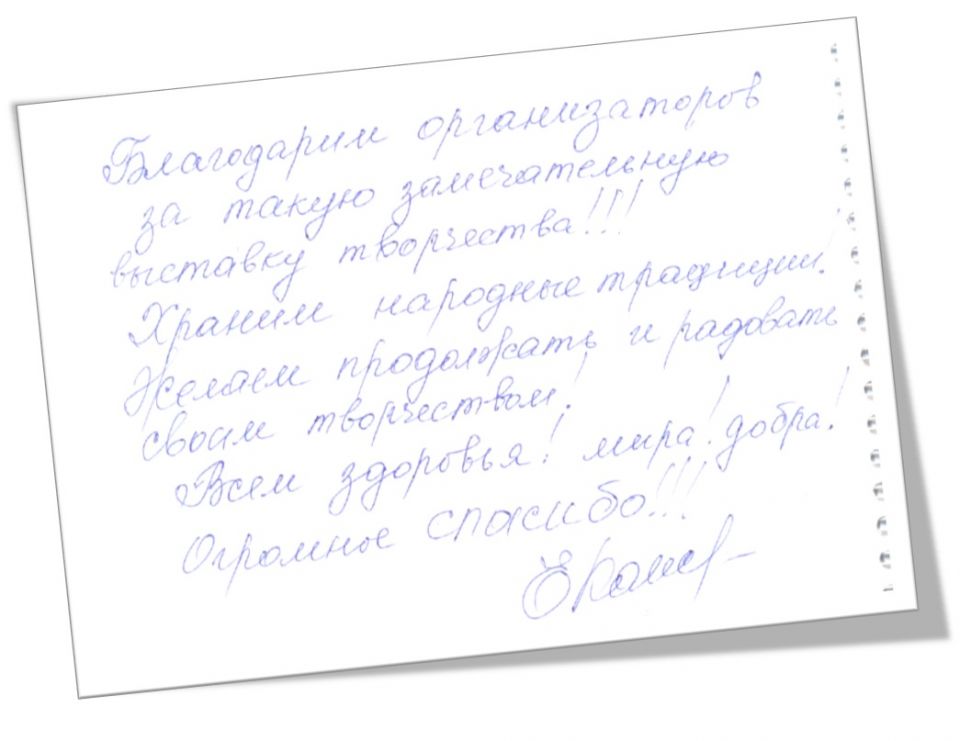 Благодарим организаторов
за такую замечательную
выставку творчества!!!
Храним народные традиции!
Желаем продолжать и радовать
своим творчеством!
Всем здоровья! мира! добра!
Огромное спасибо!!!